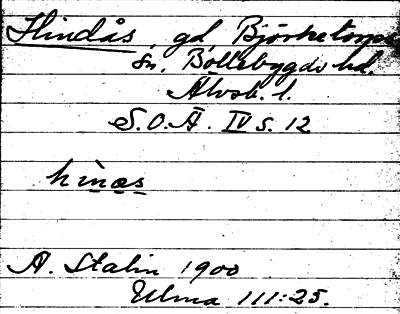 Hindås, gd, Björketorps
sn, Bollebygds hd.
Älvsb. l.
S.O.Ä. IV s. 12
hinas
A. Stalin 1900
Ulma 111:25.